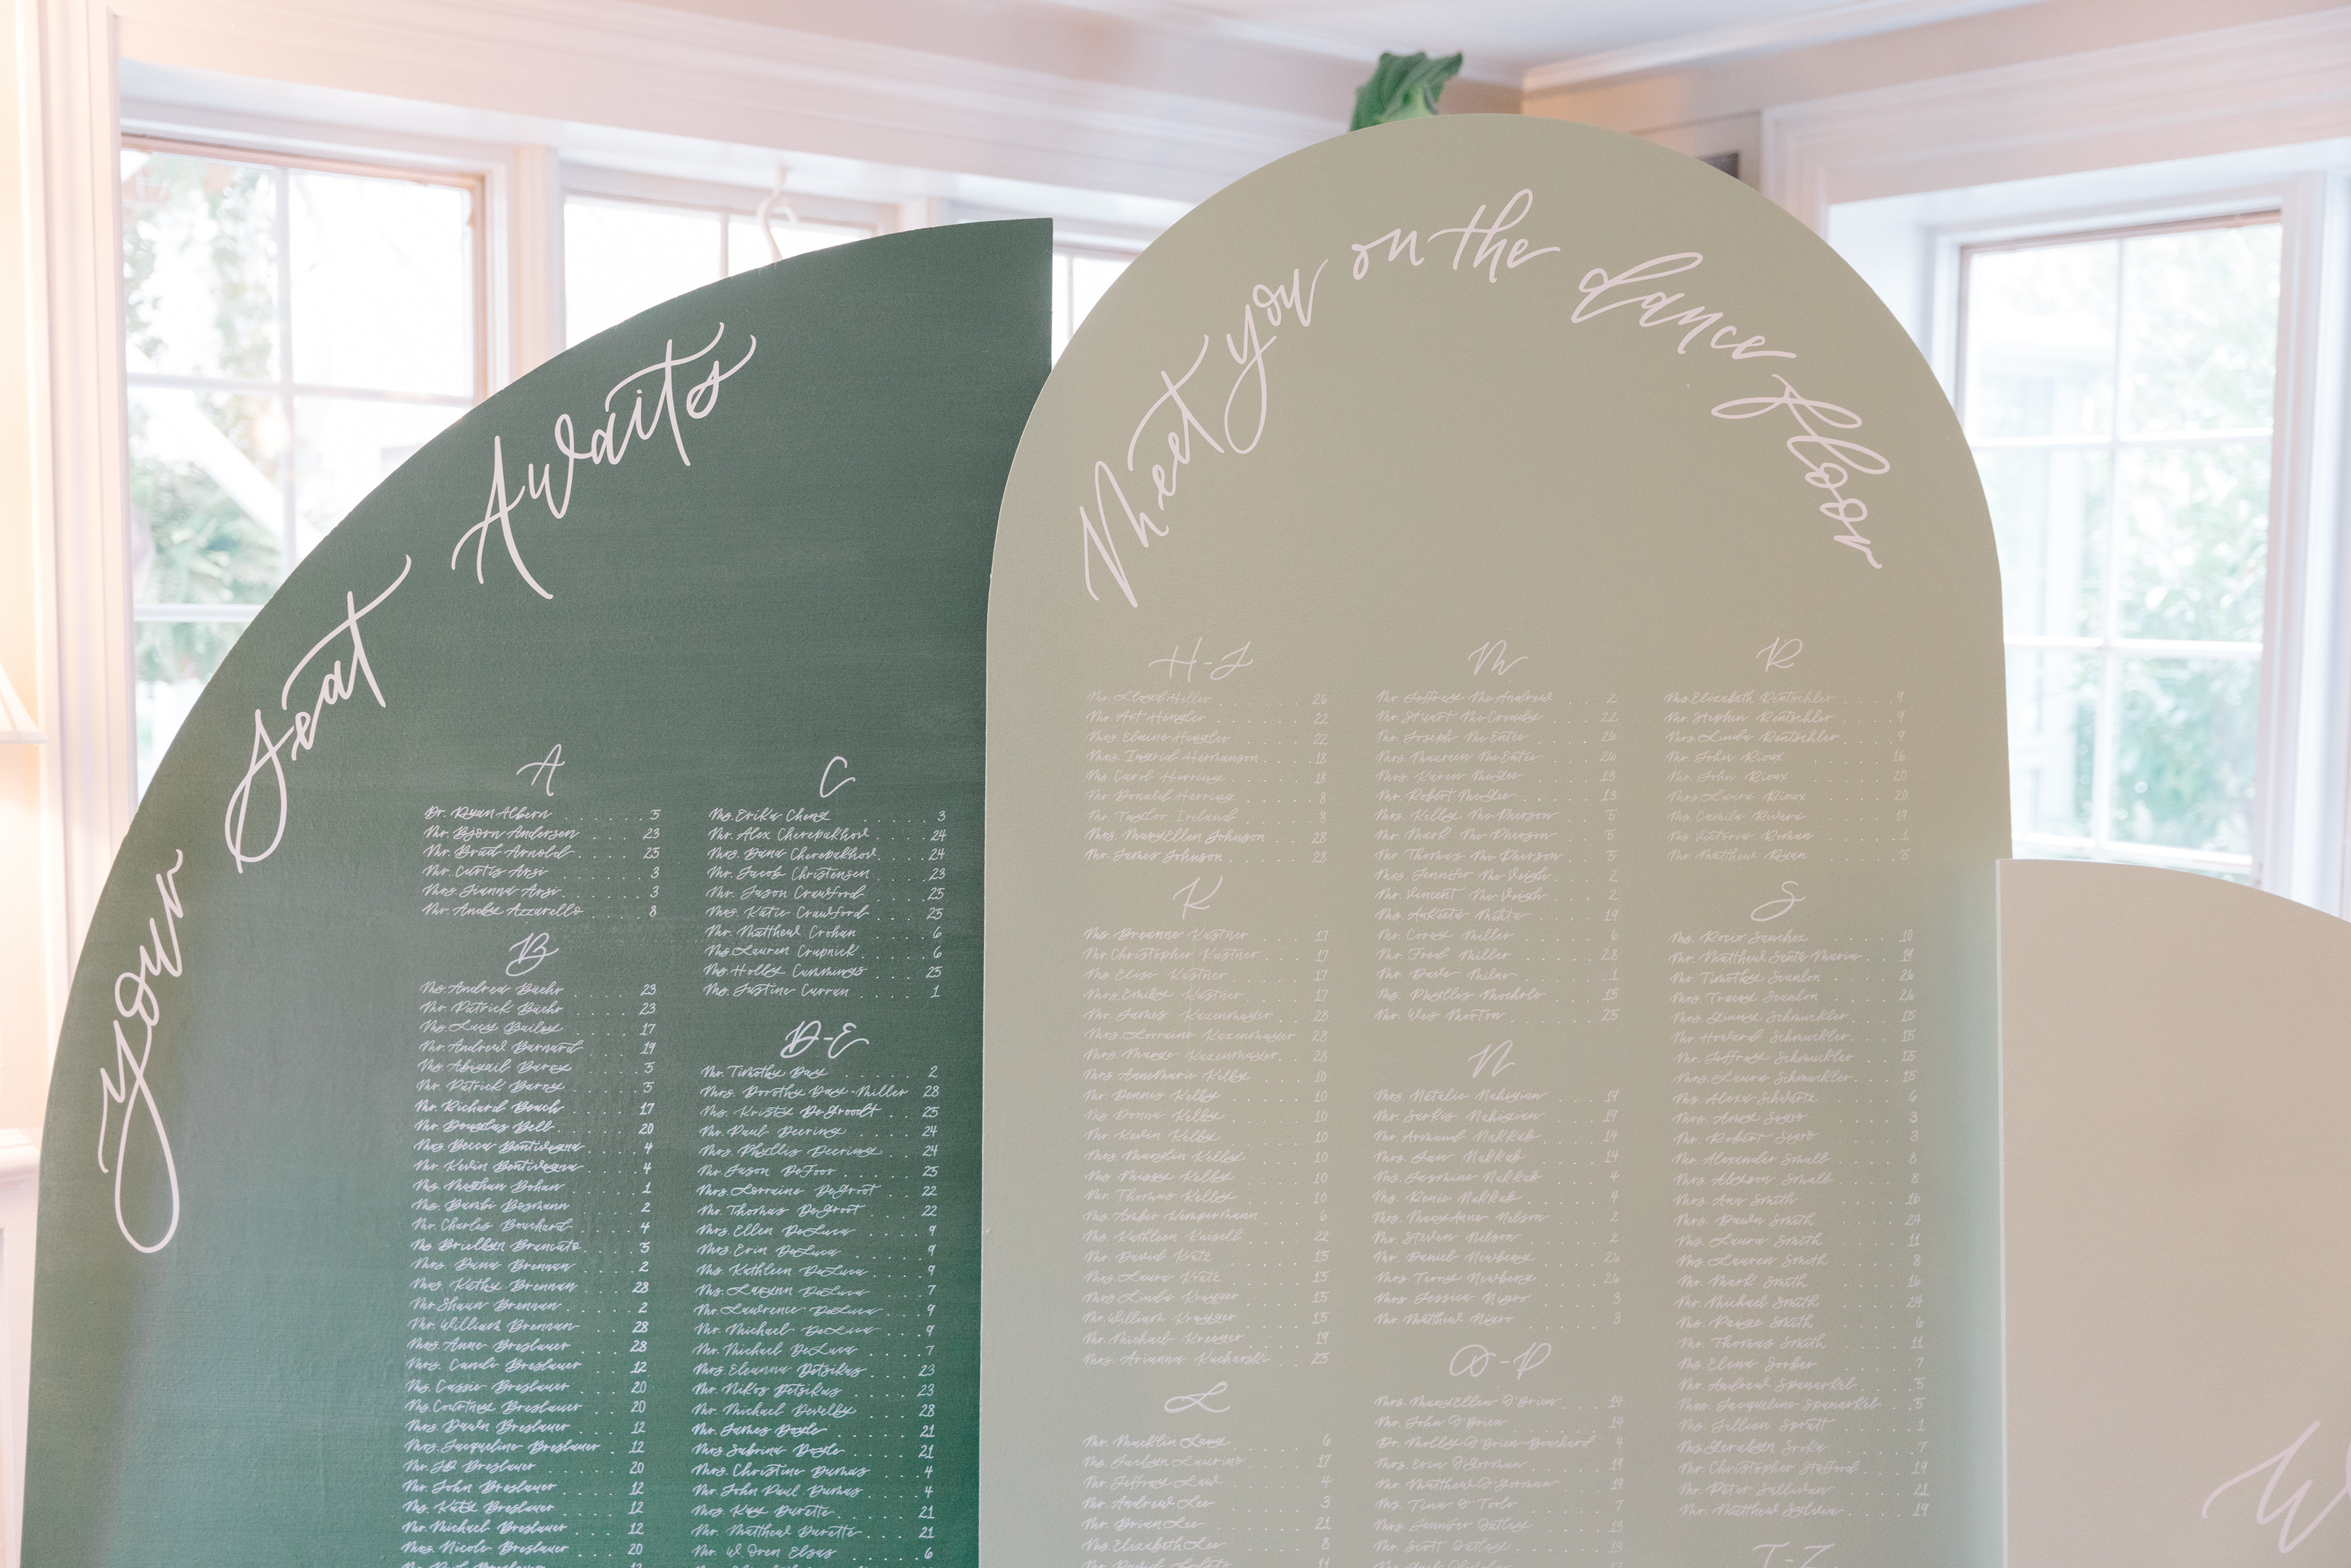 your Seat Awaits
A
Dr. Ryan Albern 5
Mr. Bjorn Andersen 23
Mr. Brad Arnold 25
Mr. Curtis Arsi 3
Mrs. Gianna Arsi 3
Mr. Andre Azzarello 8
B
Ms. Andrea Baehr 23
Mr. Patrick Baehr 23
Ms. Lucy Bailey 17
Mr. Andrew Barnard 19
Ms. Abigail Barry 5
Mr. Patrick Barry 5
Mr. Richard Beach 17
Mr. Douglas Bell 20
Mrs. Becca Bentivegna 4
Mr. Kevin Bentivegna 4
Ms. Meghan Bohan 1
Ms. Bambi Bosmann 2
Mr. Charles Bouchard 4
Ms. Briellyn Brancato 5
Mrs. Dana Brennan 2
Mrs. Kathy Brennan 28
Mr. Shaun Brennan 2
Mr. William Brennan 28
Mrs. Anne Breslauer 28
Mrs. Candi Breslauer 12
Ms. Cassie Breslauer 20
Ms. Courtney Breslauer 20
Mrs. Dawn Breslauer 12
Mrs. Jacqueline Breslauer 12
Mr. JD Breslauer 20
Mr. John Breslauer 12
Ms. Katy Breslauer 12
Mr. Michael Breslauer 12
Mrs. Nicole Breslauer 20
C
Ms. Erika Cheng 3
Mr. Alex Cherepakhov 24
Mrs. Dana Cherepakhov 24
Mr. Jacob Christensen 23
Mr. Jason Crawford 25
Mrs. Katie Crawford 25
Mr. Matthew Crohan 6
Ms. Lauren Crupnick 6
Ms. Holly Cummings 25
Ms. Justine Curran 1
D-E
Mr. Timothy Day 2
Mrs. Dorothy Day-Miller 28
Ms. Kristy DeGroodt 25
Mr. Paul Deering 24
Mrs. Phyllis Deering 24
Mr. Jason DeFoor 25
Mrs. Lorraine DeGroot 22
Mr. Thomas DeGroot 22
Mrs. Ellen DeLuca 9
Mrs. Erin DeLuca 9
Ms. Kathleen DeLuca 9
Ms. Laynn DeLuca 7
Mr. Lawrence DeLuca 9
Mr. Michael DeLuca 9
Mr. Michael DeLuca 7
Mrs. Eleanna Detsikas 23
Mr. Nikos Detsikas 23
Mr. Michael Develby 28
Mr. James Doyle 21
Mrs. Sabrina Doyle 21
Mrs. Christine Dumas 4
Mr. John Paul Dumas 4
Mrs. Kay Durette 21
Mr. Matthew Durette 21
Mr. W. Oren Elsas 6
Meet you on the dance floor
H-J
Mr. Lloyd Heller 26
Mr. Art Hengler 22
Mrs. Elaine Hengler 22
Mrs. Ingrid Hermanson 18
Ms. Carol Herring 18
Mr. Donald Herring 8
Mr. Taylor Ireland 8
Mrs. MaryEllen Johnson 28
Mr. James Johnson 28
K
Ms. Breanne Kastner 17
Mr. Christopher Kastner 17
Ms. Elise Kastner 17
Mrs. Emily Kastner 17
Mr. James Kazenmayer 28
Mrs. Lorraine Kazenmayer 28
Mrs. Margo Kazenmayer 28
Mrs. AnneMarie Kelby 10
Mr. Dennis Kelby 10
Ms. Donna Kelby 10
Mr. Kevin Kelby 10
Mrs. Marylin Kelly 10
Ms. Missy Kelly 10
Mr. Thomas Kelly 10
Ms. Amber Kempermann 6
Ms. Kathleen Knisell 22
Mr. David Kratz 15
Mrs. Laura Kratz 15
Mrs. Linda Kreyger 15
Mr. William Kreyger 15
Mr. Michael Kreyger 19
Ms. Arianna Kucharski 25
L
Mr. Macklin Lang 6
Ms. Jaclyn Laurino 17
Mr. Jeffrey Law 4
Mr. Andrew Lee 3
Mr. Brian Lee 21
Ms. Elizabeth Lee 8
M
Mr. Jeffrey McAndrew 2
Mr. Stuart McCready 22
Mr. Joseph McEntee 26
Mrs. Maureen McEntee 26
Mrs. Karen McGee 13
Mr. Robert McGee 13
Mrs. Kelly McPherson 5
Mr. Mark McPherson 5
Mr. Thomas McPherson 5
Mrs. Jennifer McVeigh 2
Mr. Vincent McVeigh 2
Ms. Ankita Mehta 19
Mr. Corey Miller 6
Mr. Fred Miller 28
Mr. Dave Milne 1
Ms. Phyllis Mochole 15
Mr. Wes Morton 25
N
Mrs. Natalie Nahigian 19
Mr. Sarkis Nahigian 19
Mr. Armand Nakkab 14
Mrs. Jan Nakkab 14
Ms. Jasmine Nakkab 4
Ms. Renie Nakkab 4
Mrs. MaryAnne Nelson 2
Mr. Steven Nelson 2
Mr. Daniel Newberg 26
Mrs. Terry Newberg 26
Mrs. Jessica Nigro 3
Mr. Matthew Nigro 3
O-P
Mrs. MaryEllen O'Brien 14
Mr. John O'Brien 14
Dr. Molly O'Brien-Bouchard 4
Mrs. Erin O'Gorman 19
Mr. Matthew O'Gorman 19
Ms. Tina O'Toole 7
Mrs. Jennifer Oatley 13
Mr. Scott Oatley 13
R
Ms. Elizabeth Rentschler 9
Mr. Stephen Rentschler 9
Mrs. Linda Rentschler 9
Mr. John Rioux 16
Mr. John Rioux 20
Mrs. Laura Rioux 20
Ms. Camila Rivera 19
Ms. Victoria Roman 1
Mr. Matthew Ryan
S
Ms. Rocio Sanchez 10
Mr. Matthew Santa Maria 19
Mr. Timothy Scanlon 26
Mrs. Tracey Scanlon 26
Mrs. Ginny Schmuckler 15
Mr. Howard Schmuckler 15
Mr. Jeffrey Schmuckler 15
Mrs. Laura Schmuckler 15
Ms. Alexa Schwartz 6
Mrs. Amy Segro 3
Mr. Robert Segro 3
Mr. Alexander Small 8
Mrs. Alyson Small 8
Mrs. Ann Smith 16
Mrs. Dawn Smith 24
Ms. Laura Smith 11
Ms. Lauren Smith 8
Mr. Mark Smith 16
Mr. Michael Smith 24
Ms. Paige Smith 6
Mr. Thomas Smith 11
Ms. Elena Sorber 7
Mr. Andrew Spanarkel 5
Mrs. Jacqueline Spanarkel 5
Ms. Jillian Spratt 1
Ms. Geralyn Sroka 7
Mr. Christopher Stafford 19
Mr. Peter Sullivan 21
Mr. Matthew Sylvia 19
T-Z
W